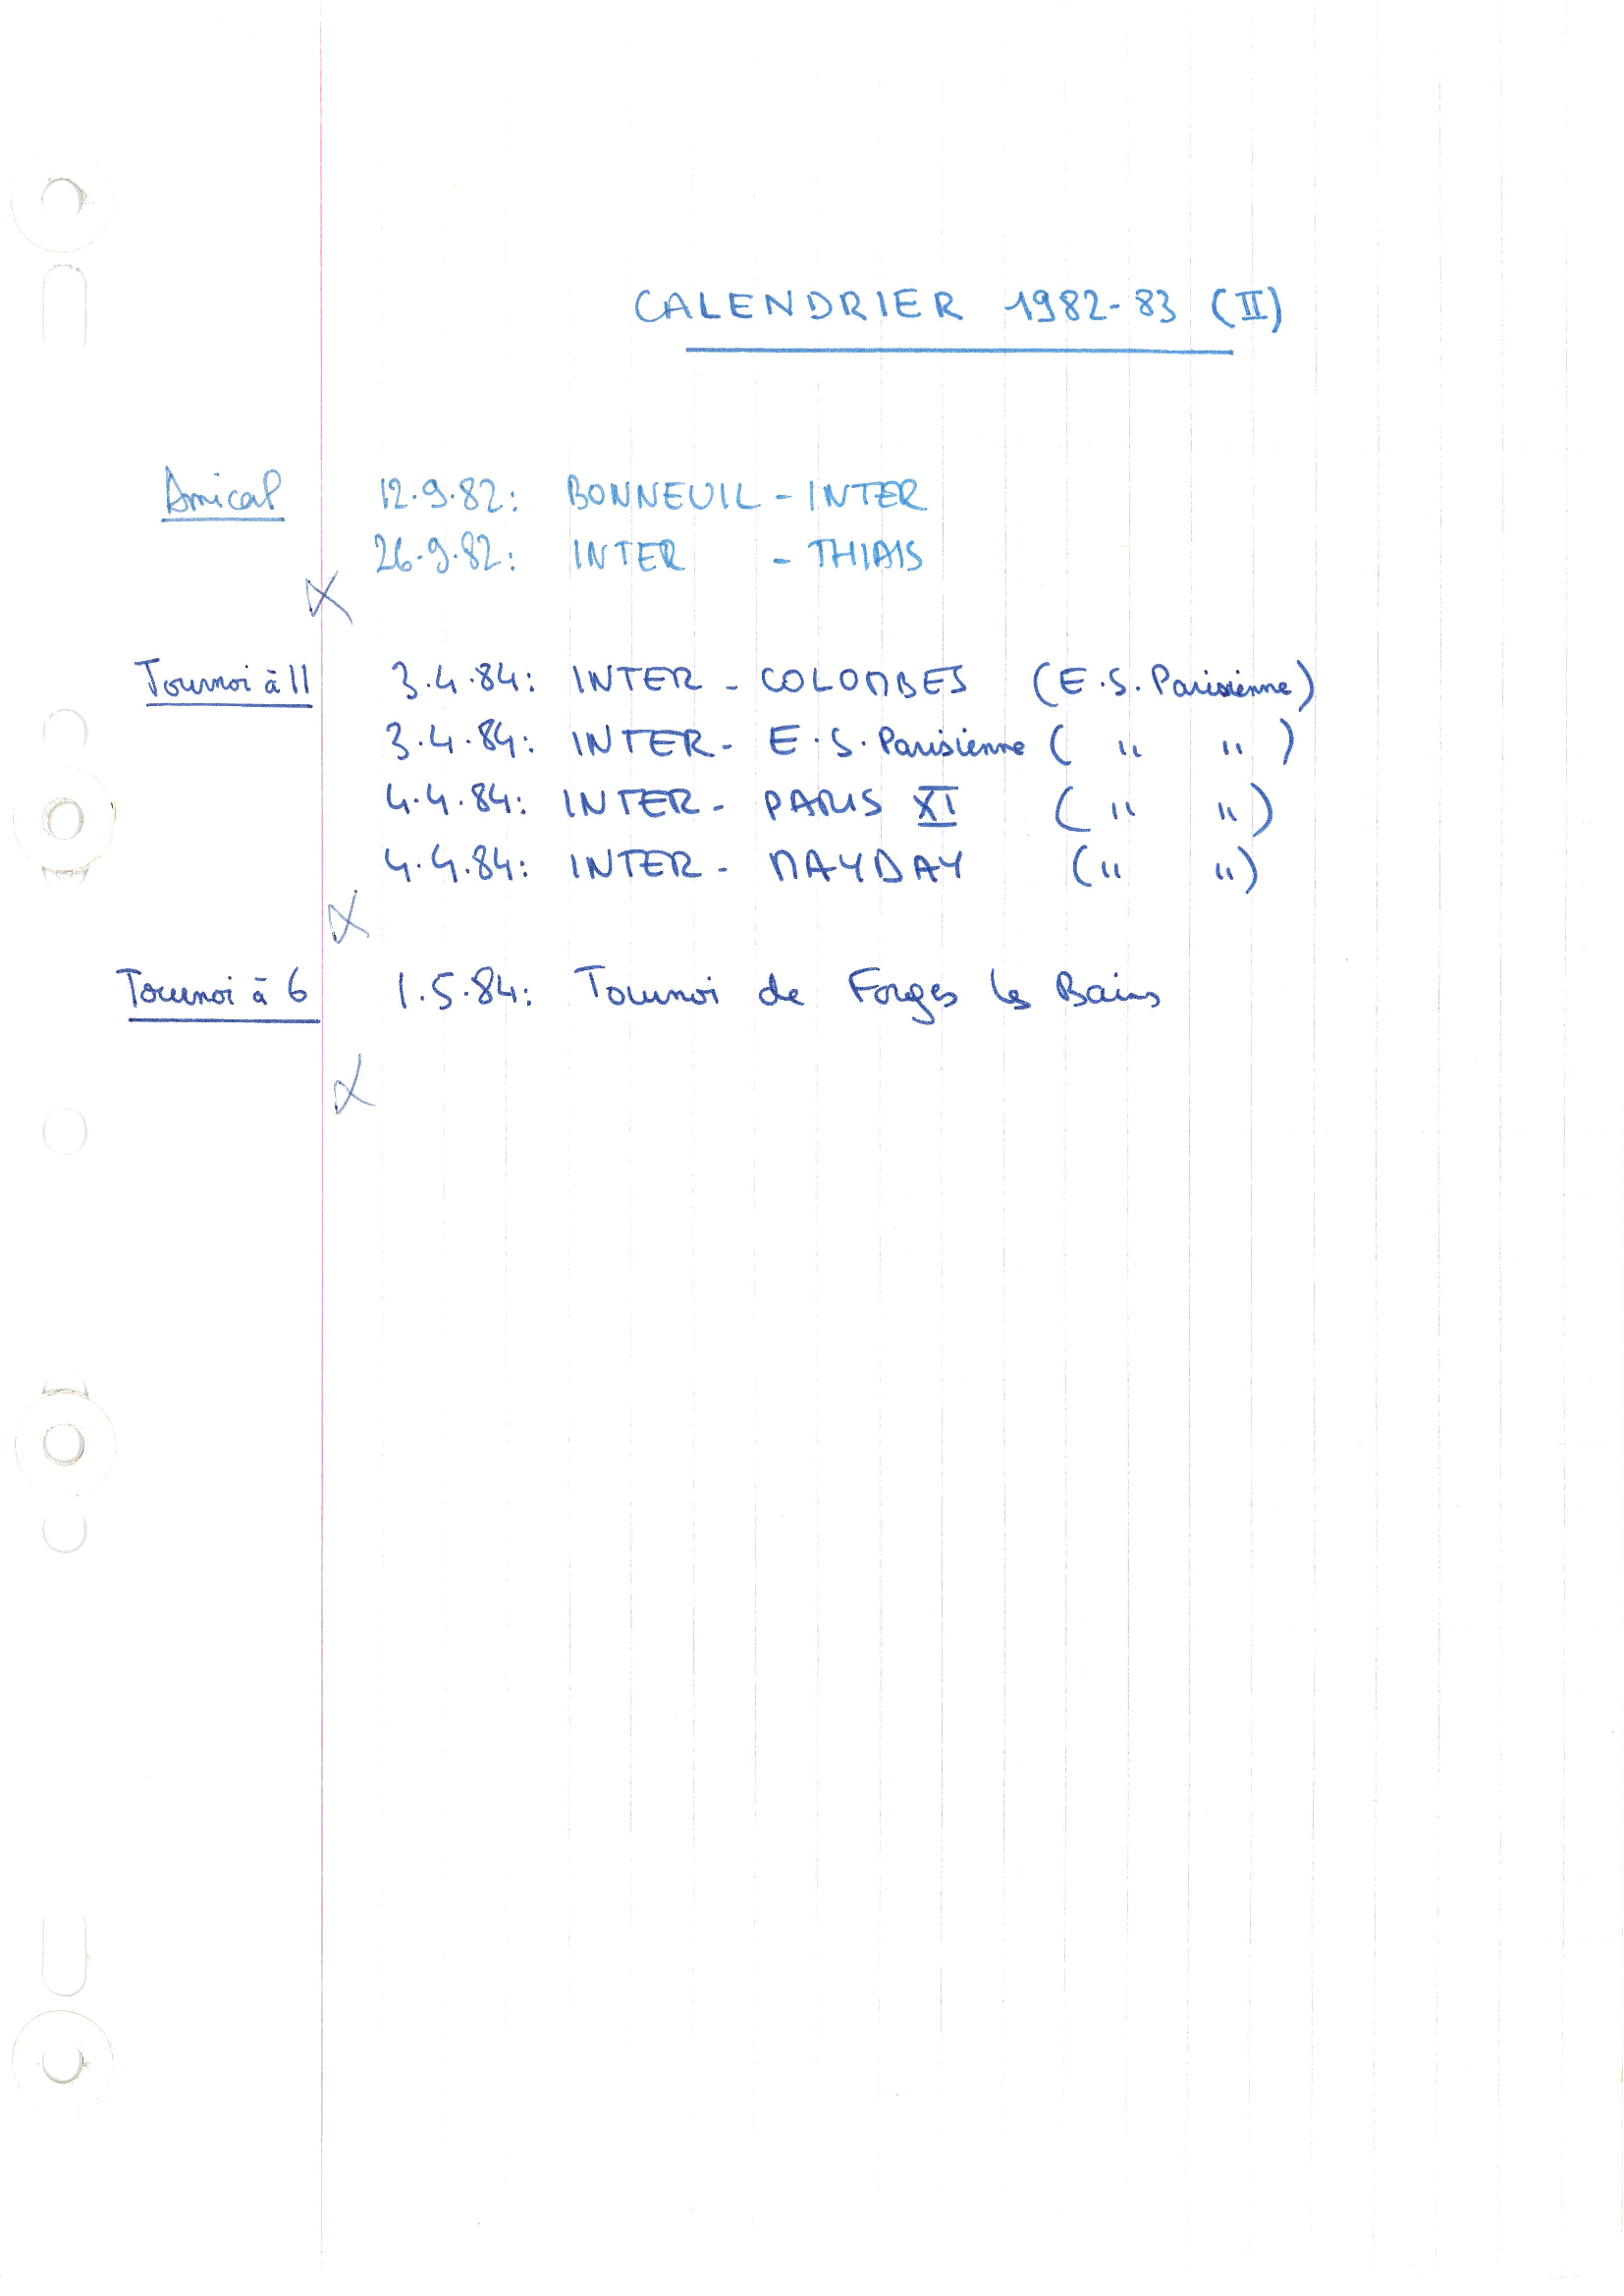 CALENDRIER 1982-83 (II)
Amical 12.9.82: BONNEUIL - INTER
26.9.82: INTER - THIAIS
Tournoi à 11 3.4.84: INTER - COLOMBES (E.S. Parisienne)
3.4.84: INTER - E.S. Parisienne ( " " )
4.4.84: INTER - PARIS XI ( " " )
4.4.84: INTER - MAYDAY ( " " )
Tournoi à 6 1.5.84: Tournoi de Forges les Bains